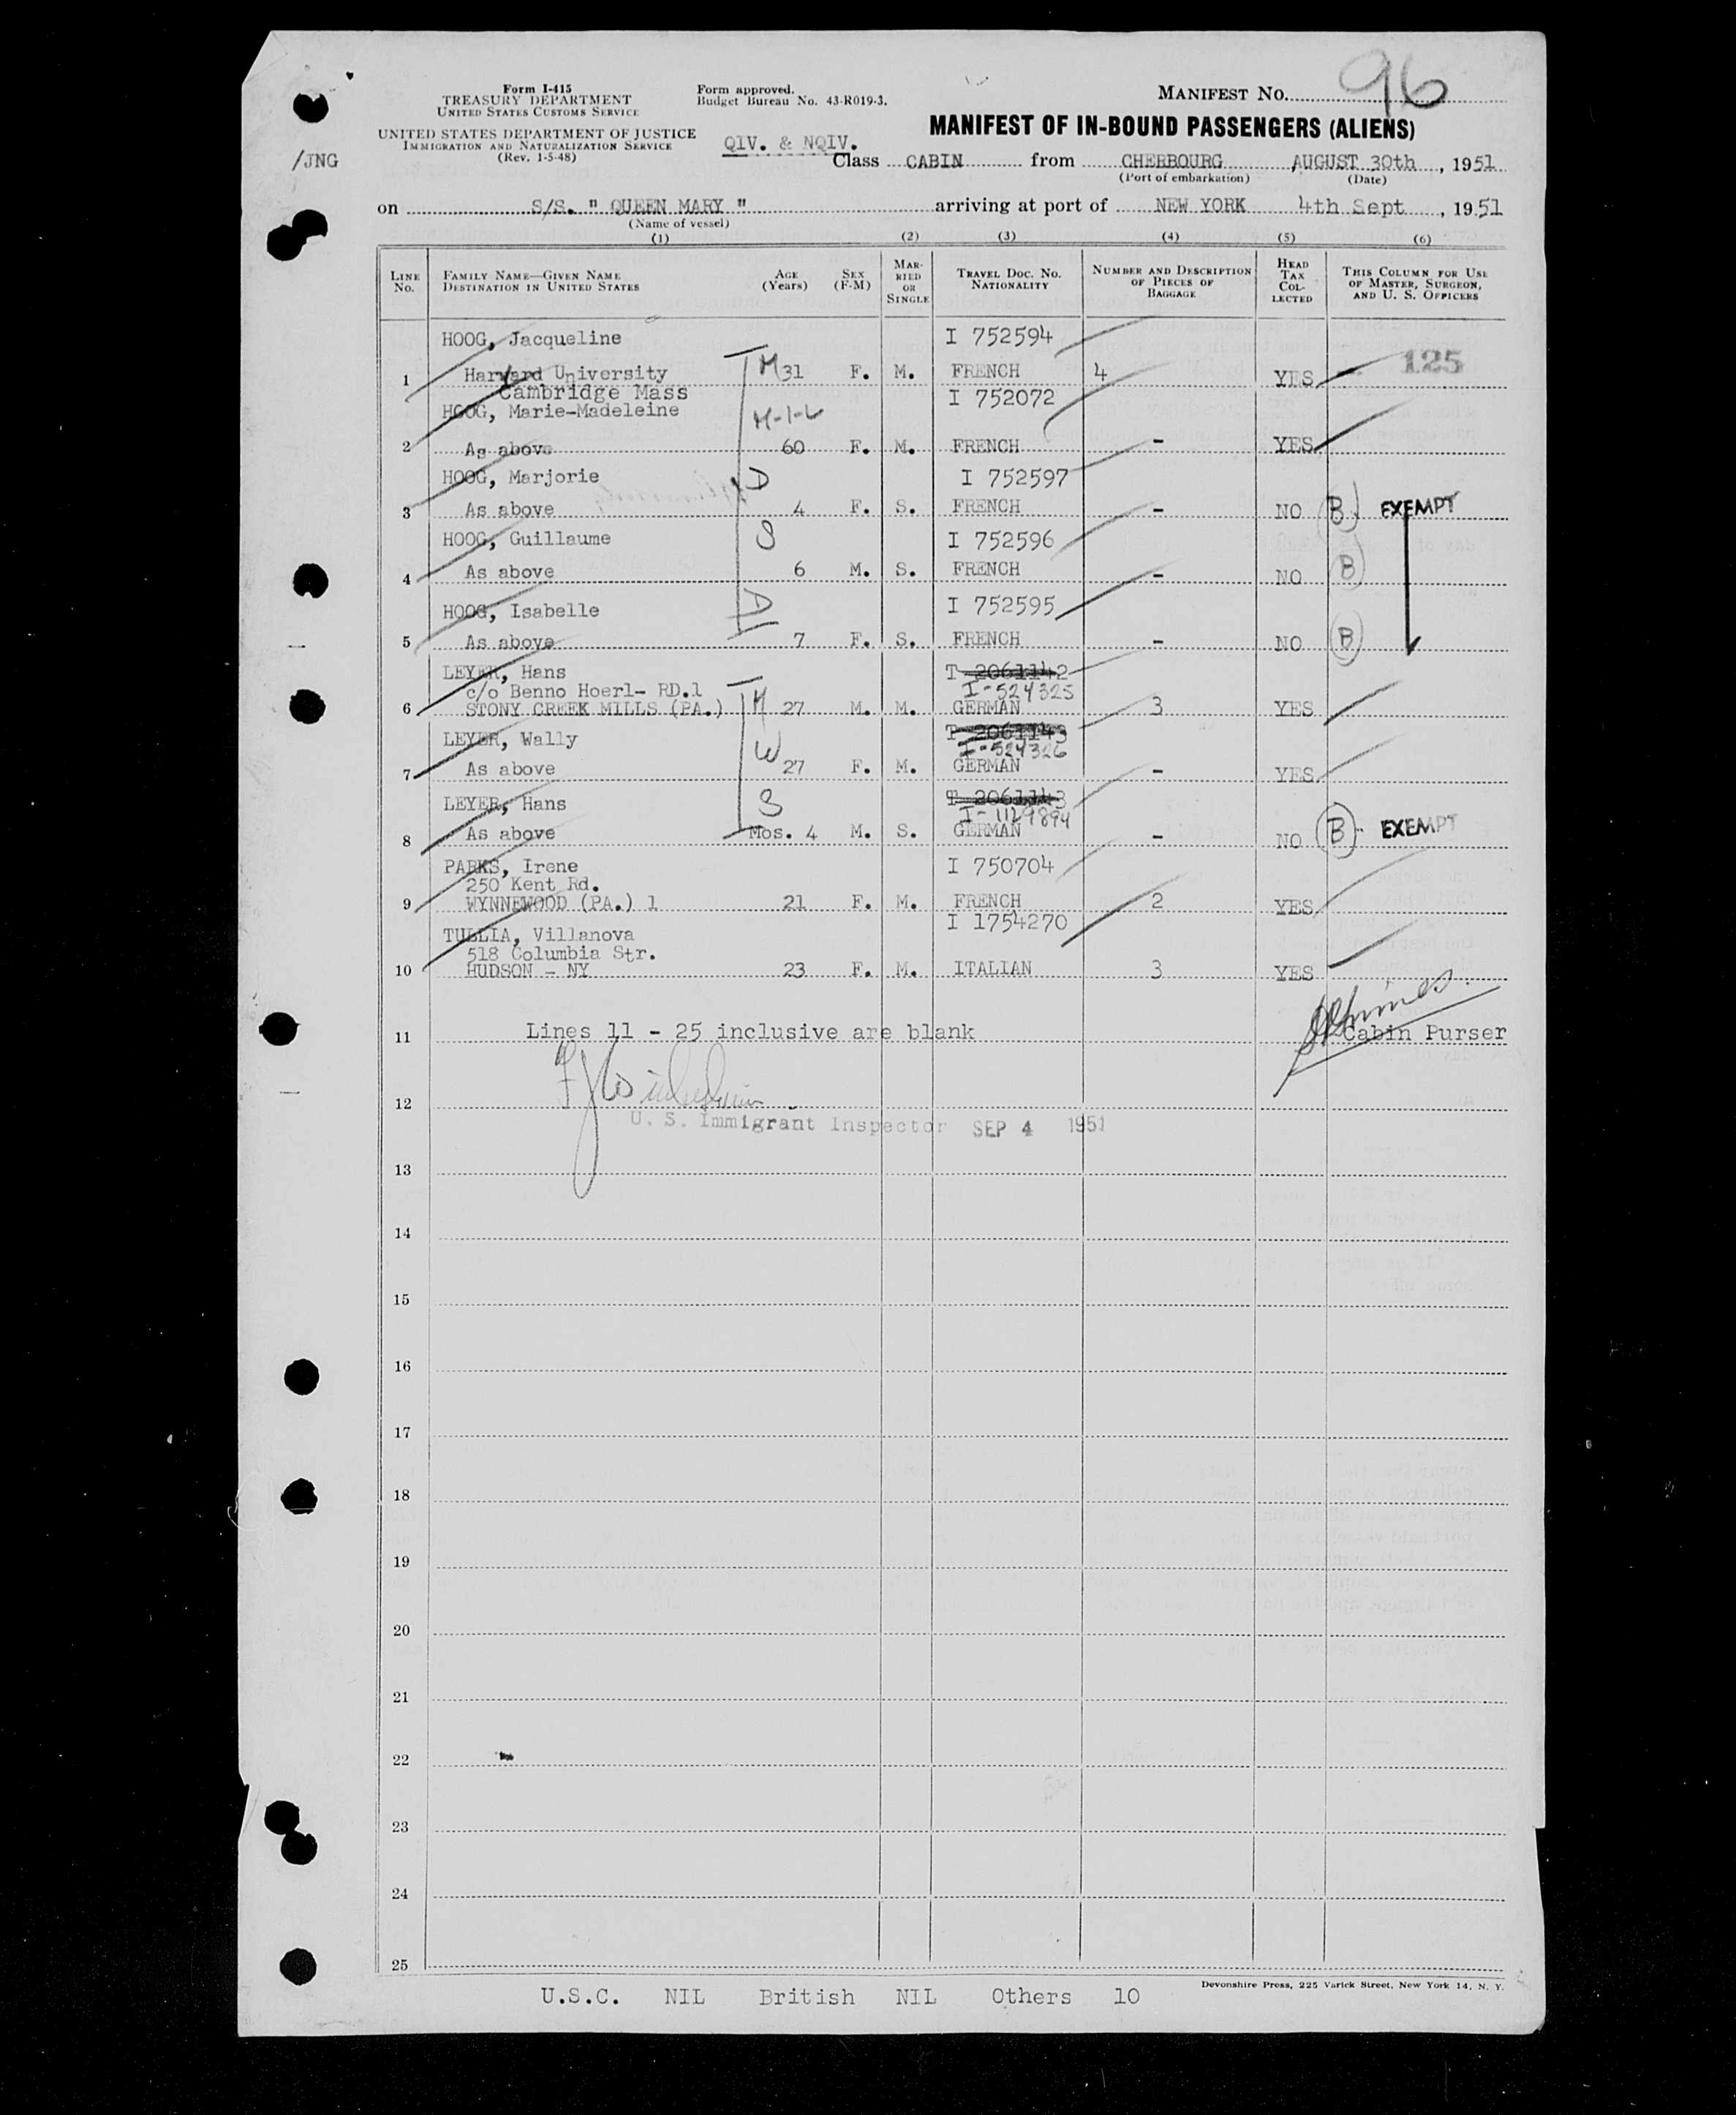 96
Form I-415
TREASURY DEPARTMENT
UNITED STATES CUSTOMS SERVICE
UNITED STATES DEPARTMENT OF JUSTICE
IMMIGRATION AND NATURALIZATION SERVICE
(Rev. 1-5-48)
/JNG
Form approved.
Budget Bureau No. 43-R019-3.
MANIFEST NO.
MANIFEST OF IN-BOUND PASSENGERS (ALIENS)
QIV. & NQIV.
Class CABIN from CHERBOURG, AUGUST 30th, 1951
(Port of embarkation) (Date)
on S/S. " QUEEN MARY " arriving at port of NEW YORK 4th Sept, 1951
(Name of vessel)
(1) (2) (3) (4) (5) (6)
LINE NO.
FAMILY NAME—GIVEN NAME
DESTINATION IN UNITED STATES
AGE (Years)
SEX (F-M)
MARRIED OR SINGLE
TRAVEL DOC. NO.
NATIONALITY
NUMBER AND DESCRIPTION OF PIECES OF BAGGAGE
HEAD TAX COLLECTED
THIS COLUMN FOR USE OF MASTER, SURGEON, AND U. S. OFFICERS
HOOG, Jacqueline I 752594
1 Harvard University M 31 F. M. FRENCH 4 YES 125
Cambridge Mass
HOOG, Marie-Madeleine M-I-L I 752072
2 As above 60 F. M. FRENCH - YES
HOOG, Marjorie D I 752597
3 As above 4 F. S. FRENCH - NO B EXEMPT
HOOG, Guillaume S I 752596
4 As above 6 M. S. FRENCH - NO B
HOOG, Isabelle D I 752595
5 As above 7 F. S. FRENCH - NO B
LEYER, Hans T 2061142
c/o Benno Hoerl- RD.1 I-524325
6 STONY CREEK MILLS (PA.) M 27 M. M. GERMAN 3 YES
LEYER, Wally T 2061143
W I-524326
7 As above 27 F. M. GERMAN - YES
LEYER, Hans S T 2061143
I-1129894
8 As above Mos. 4 M. S. GERMAN - NO B EXEMPT
PARKS, Irene I 750704
250 Kent Rd.
9 WYNNEWOOD (PA.) 1 21 F. M. FRENCH 2 YES
I 1754270
TULLIA, Villanova
518 Columbia Str.
10 HUDSON - NY 23 F. M. ITALIAN 3 YES
11 Lines 11 - 25 inclusive are blank Cabin Purser
12
U. S. Immigrant Inspector SEP 4 1951
13
14
15
16
17
18
19
20
21
22
23
24
25
Devonshire Press, 225 Varick Street, New York 14, N. Y.
U.S.C. NIL British NIL Others 10